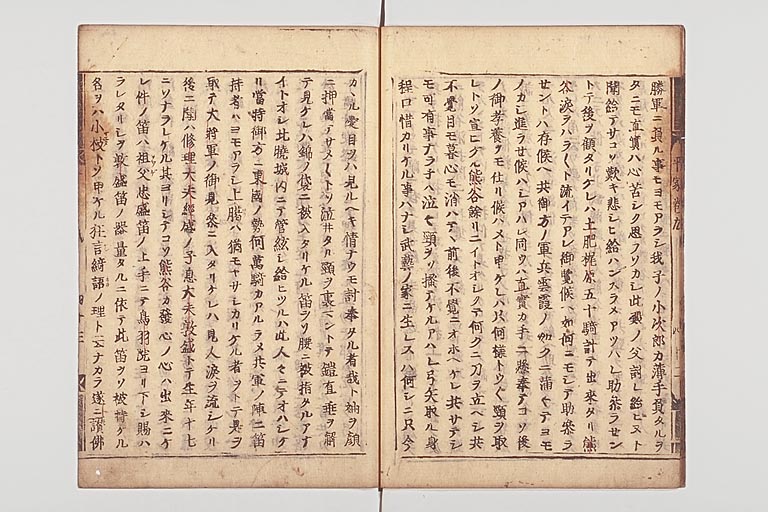 平家卷九
勝軍ニ負ル事ヨモアラシ我子ノ小次郎カ薄手負タルヲ
タニモ直實ハ心苦シク思フソカシ此殿ノ父討レ給ヒヌト
聞給テサコソ歎キ悲シヒ給ハンスラメアツハレ助参ラセン
トテ後ヲ顧タリケレハ土肥梶原五十騎計テ出來タリ熊
谷涙ヲハラ〱ト流イテアレ御覧候ヘ如何ニモシテ助参ラ
セントハ存候ヘ共御方ノ軍兵雲霞ノ如クニ満〱テヨモ
ノカシ進ラセ候ハシアハレ同クハ直實カ手ニ懸奉テコソ後
ノ御孝養ヲモ仕リ候ハメト申ケレハ只何様トウ〱頸ヲ取
レトソ宣ヒケル熊谷餘リニイトオシクテ何クニ刀ヲ立ヘシ共
不覺目モ暮心モ消ハテヽ前後不覺ニオホヘケレ共サテシ
モ可有事ナラネハ泣〱頸ヲソ搔テケルアハレ弓矢取ル身
程口惜カリケル事ハナシ武藝ノ家ニ生レスハ何シニ只今
カヽル憂目ヲハ見ルヘキ情ナウモ討奉タル者哉ト袖ヲ顔
ニ押當テサメ〱トソ泣井タリ頸ヲ裹ントテ鎧直垂ヲ解
テ見ケレハ錦ノ袋ニ被入タリケル笛ヲソ腰ニ被指タルアナ
イトオシ此曉城内ニテ管絃シ給ヒツルハ此人々ニテオハシケ
リ當時御方ニ東國ノ勢何萬騎カアルラメ共軍ノ陣ニ笛
持者ハヨモアラシ上臈ハ猶モヤサシカリケル者ヲトテ是ヲ
取テ大將軍ノ御見参ニ入タリケレハ見人涙ヲ流シケリ
後ニ聞ハ修理大夫經盛ノ子息大夫敦盛トテ生年十七
ニソナラレケル其ヨリシテコソ熊谷カ發心ノ心ハ出來ニケ
レ件ノ笛ハ祖父忠盛笛ノ上手ニテ鳥羽院ヨリ下シ賜ハ
ラレタリシヲ敦盛笛ノ器量タルニ依テ此笛ヲソ被持ケル
名ヲハ小枝トソ申ケル狂言綺語ノ理ト云ナカラ遂ニ讃佛